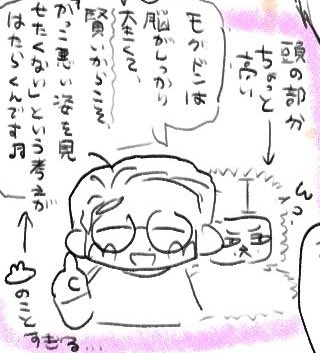 頭の部分
ちょっと
高い
モグドンは
脳がしっかり
大きくて、
賢いからこそ
「かっこ悪い姿を見
せたくない」という考えが
はたらくんですね
のこと
すぎる…